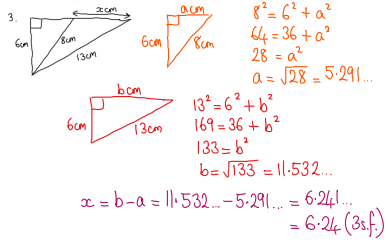 3.
xcm
6cm
8cm
13cm
acm
6cm
8cm
8² = 6² + a²
64 = 36 + a²
28 = a²
a = √28 = 5·291...
bcm
6cm
13cm
13² = 6² + b²
169 = 36 + b²
133 = b²
b = √133 = 11·532...
x = b - a = 11·532... - 5·291... = 6·241...
= 6·24 (3s.f.)